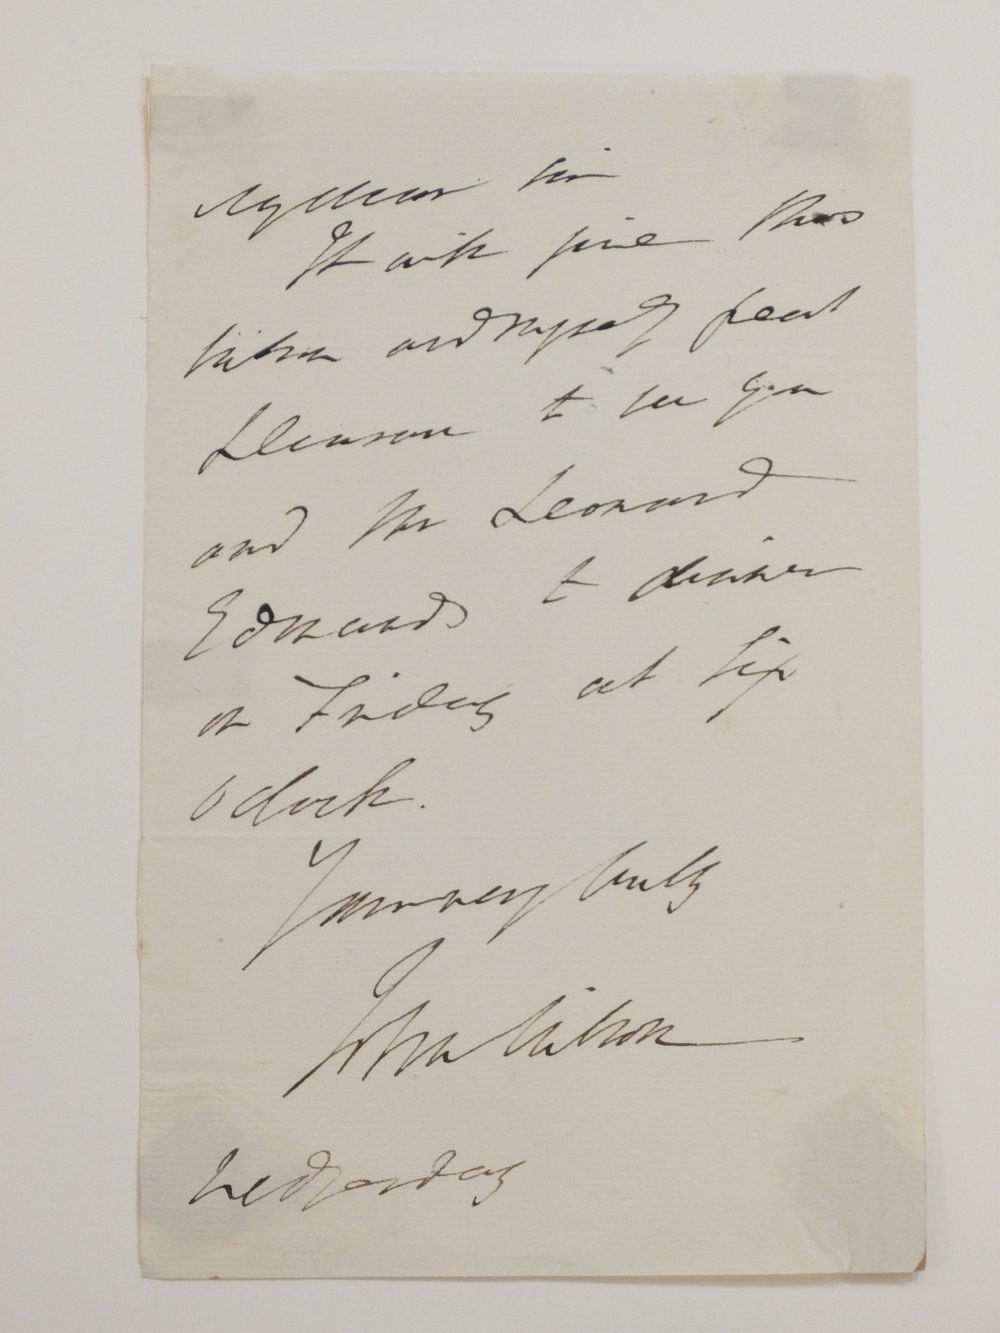 My dear Sir
It will give Mrs
Wilson and myself great
pleasure to see you
and Mr Leonard
Edmunds to dinner
on Friday at Six
o'clock.
Yours very truly
John Wilson
Wednesday